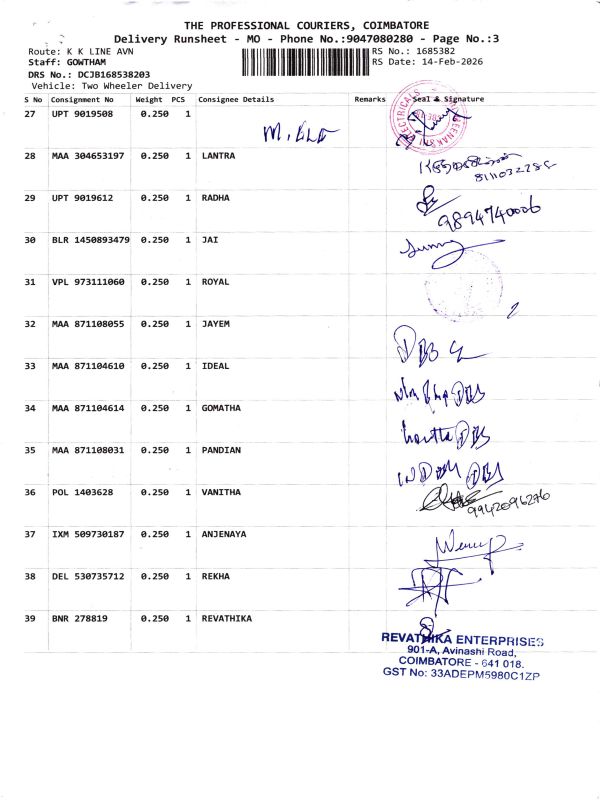 THE PROFESSIONAL COURIERS, COIMBATORE
Delivery Runsheet - MO - Phone No.:9047080280 - Page No.:3
Route: K K LINE AVN
RS No.: 1685382
Staff: GOWTHAM
RS Date: 14-Feb-2026
DRS No.: DCJB168538203
Vehicle: Two Wheeler Delivery
S No Consignment No Weight PCS Consignee Details Remarks Seal & Signature
27 UPT 9019508 0.250 1
28 MAA 304653197 0.250 1 LANTRA
29 UPT 9019612 0.250 1 RADHA
9894740006
30 BLR 1450893479 0.250 1 JAI
31 VPL 973111060 0.250 1 ROYAL
32 MAA 871108055 0.250 1 JAYEM
33 MAA 871104610 0.250 1 IDEAL
34 MAA 871104614 0.250 1 GOMATHA
35 MAA 871108031 0.250 1 PANDIAN
36 POL 1403628 0.250 1 VANITHA
9942096276
37 IXM 509730187 0.250 1 ANJENAYA
38 DEL 530735712 0.250 1 REKHA
39 BNR 278819 0.250 1 REVATHIKA
REVATHIKA ENTERPRISES
901-A, Avinashi Road,
COIMBATORE - 641 018.
GST No: 33ADEPM5980C1ZP